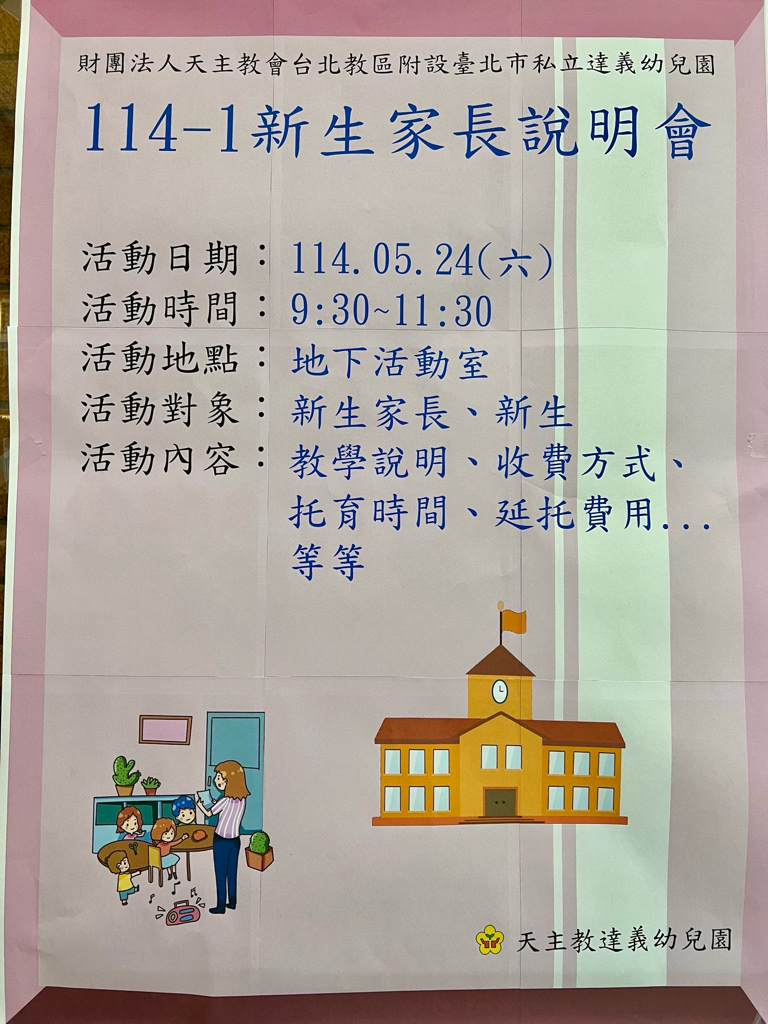 財團法人天主教會台北教區附設臺北市私立達義幼兒園
114-1新生家長說明會
活動日期：114.05.24(六)
活動時間：9:30~11:30
活動地點：地下活動室
活動對象：新生家長、新生
活動內容：教學說明、收費方式、
托育時間、延托費用...
等等
天主教達義幼兒園